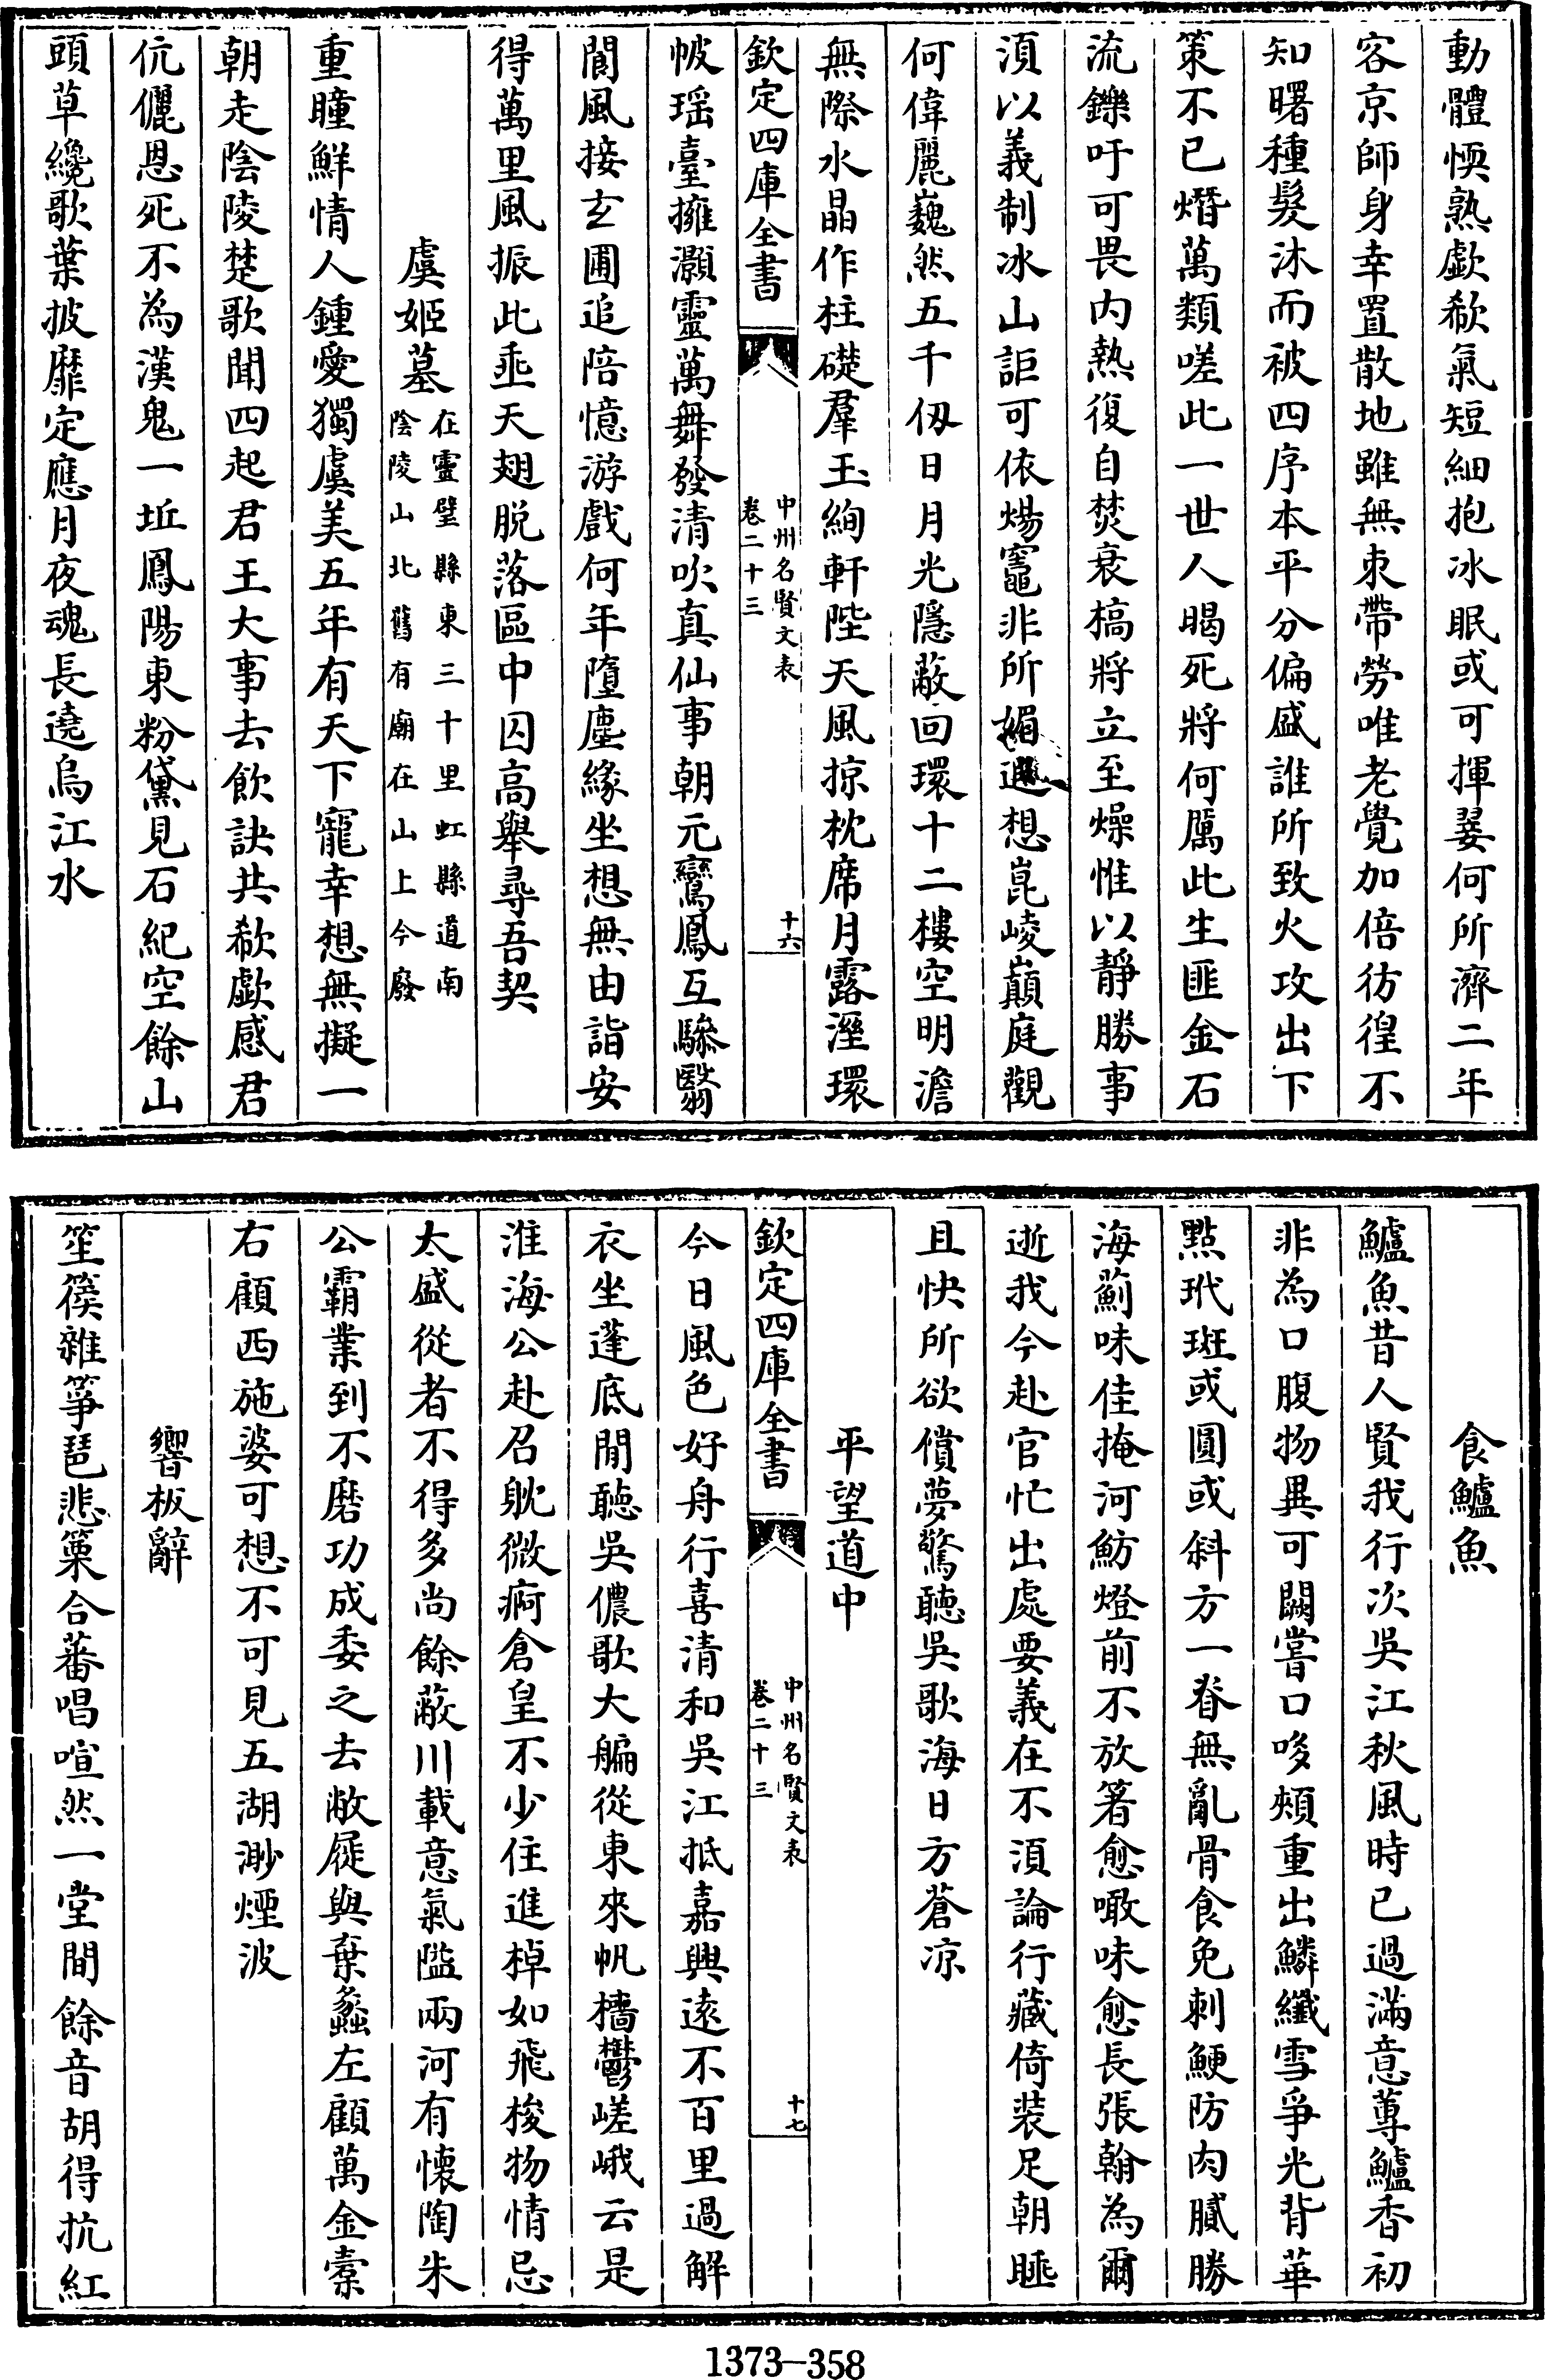 動體愞熟歔欷氣短細抱冰眠或可揮翣何所濟二年
客京師身幸置散地雖無束帶勞唯老覺加倍彷徨不
知曙種髮沐而被四序本平分偏盛誰所致火攻出下
策不已熸萬類嗟此一世人暍死將何厲此生匪金石
流鑠吁可畏内熱復自焚衰槁將立至燥惟以靜勝事
湏以義制冰山詎可依煬竈非所媚遐想崑崚巔庭觀
何偉麗巍然五千仭日月光隱蔽回環十二樓空明澹
無際水晶作柱礎羣玉絢軒陛天風掠枕席月露溼環
欽定四庫全書
中州名賢文表
卷二十三
十六
帔瑶臺擁灝靈萬舞發清吹真仙事朝元鸞鳳互驂翳
閬風接玄圃追陪憶游戲何年墮塵緣坐想無由詣安
得萬里風振此垂天翅脱落區中囚高舉尋吾契
虞姬墓
在靈璧縣東三十里虹縣道南
陰陵山北舊有廟在山上今廢
重瞳鮮情人鍾愛獨虞美五年有天下寵幸想無擬一
朝走陰陵楚歌聞四起君王大事去飲訣共欷歔感君
伉儷恩死不為漢鬼一坵鳳陽東粉黛見石紀空餘山
頭草纔歌葉披靡定應月夜魂長遶烏江水
食鱸魚
鱸魚昔人賢我行次吳江秋風時已過滿意蓴鱸香初
非為口腹物異可闕嘗口哆頰重出鱗纖雪爭光背華
㸃玳斑或圓或斜方一脊無亂骨食免刺鯁防肉膩勝
海薊味佳掩河魴燈前不放箸愈噉味愈長張翰為爾
逝我今赴官忙出處要義在不湏論行藏倚裝足朝睡
且快所欲償夢驚聽吳歌海日方蒼凉
平望道中
欽定四庫全書
中州名賢文表
卷二十三
十七
今日風色好舟行喜清和吳江抵嘉興逺不百里過解
衣坐蓬底閒聽吳儂歌大艑從東來帆檣鬱嵯峨云是
淮海公赴召躭微痾倉皇不少住進棹如飛梭物情忌
太盛從者不得多尚餘蔽川載意氣隘兩河有懷陶朱
公霸業到不磨功成委之去敝屣與棄蠡左顧萬金橐
右顧西施婆可想不可見五湖渺煙波
響板辭
笙篌雜箏琶悲篥合蕃唱喧然一堂間餘音胡得抗紅
1373—358